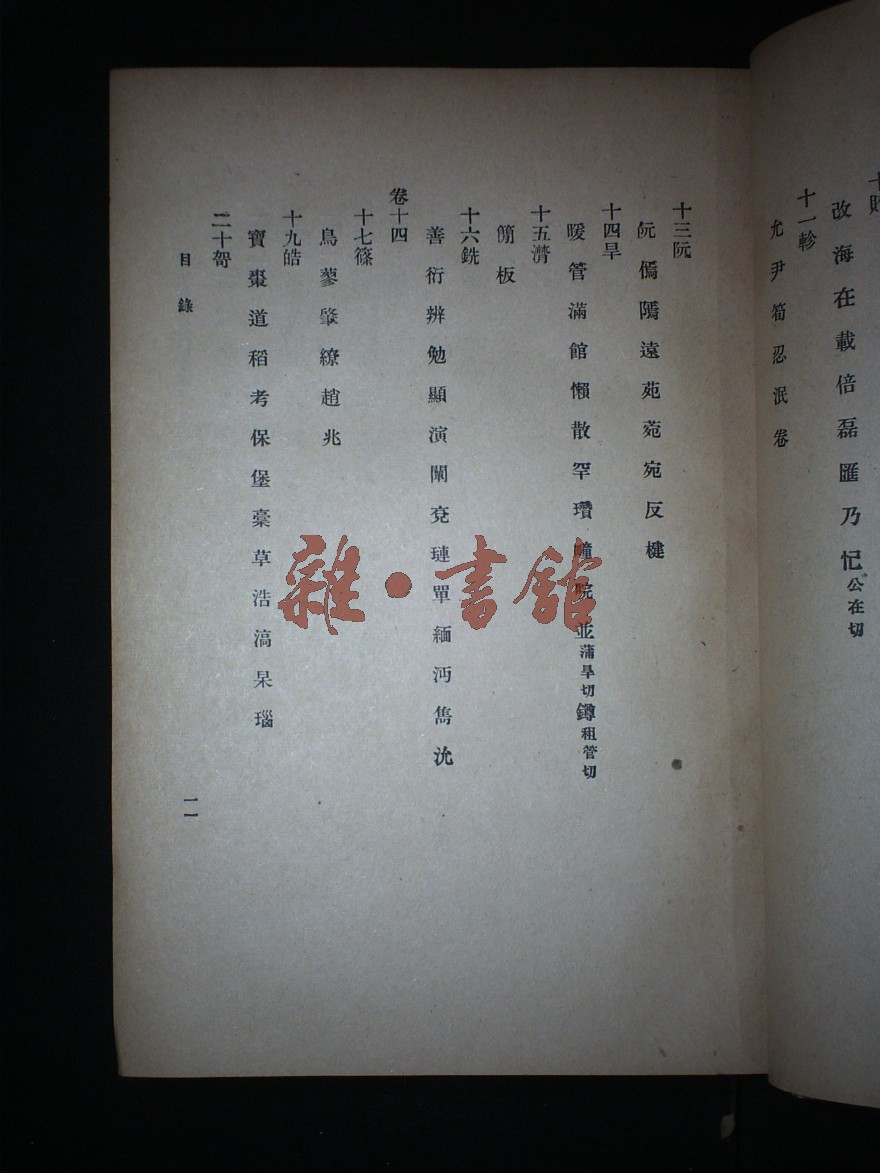 改海在載倍磊匯乃
公在切
十一軫
允尹筍忍泯卷
十三阮
阮傿隝遠苑菀宛反楗
十四旱
暖管滿館懶散罕瓚
並蒲旱切鐏租管切
十五濟
簡板
十六銑
善衍辨勉顯演闡兗璉單緬沔雋沇
卷十四
十七篠
鳥蓼肇繚趙兆
十九皓
寶棗道稻考保堡槀草浩滈杲瑙
二十哿
目錄
一一
雜·書館